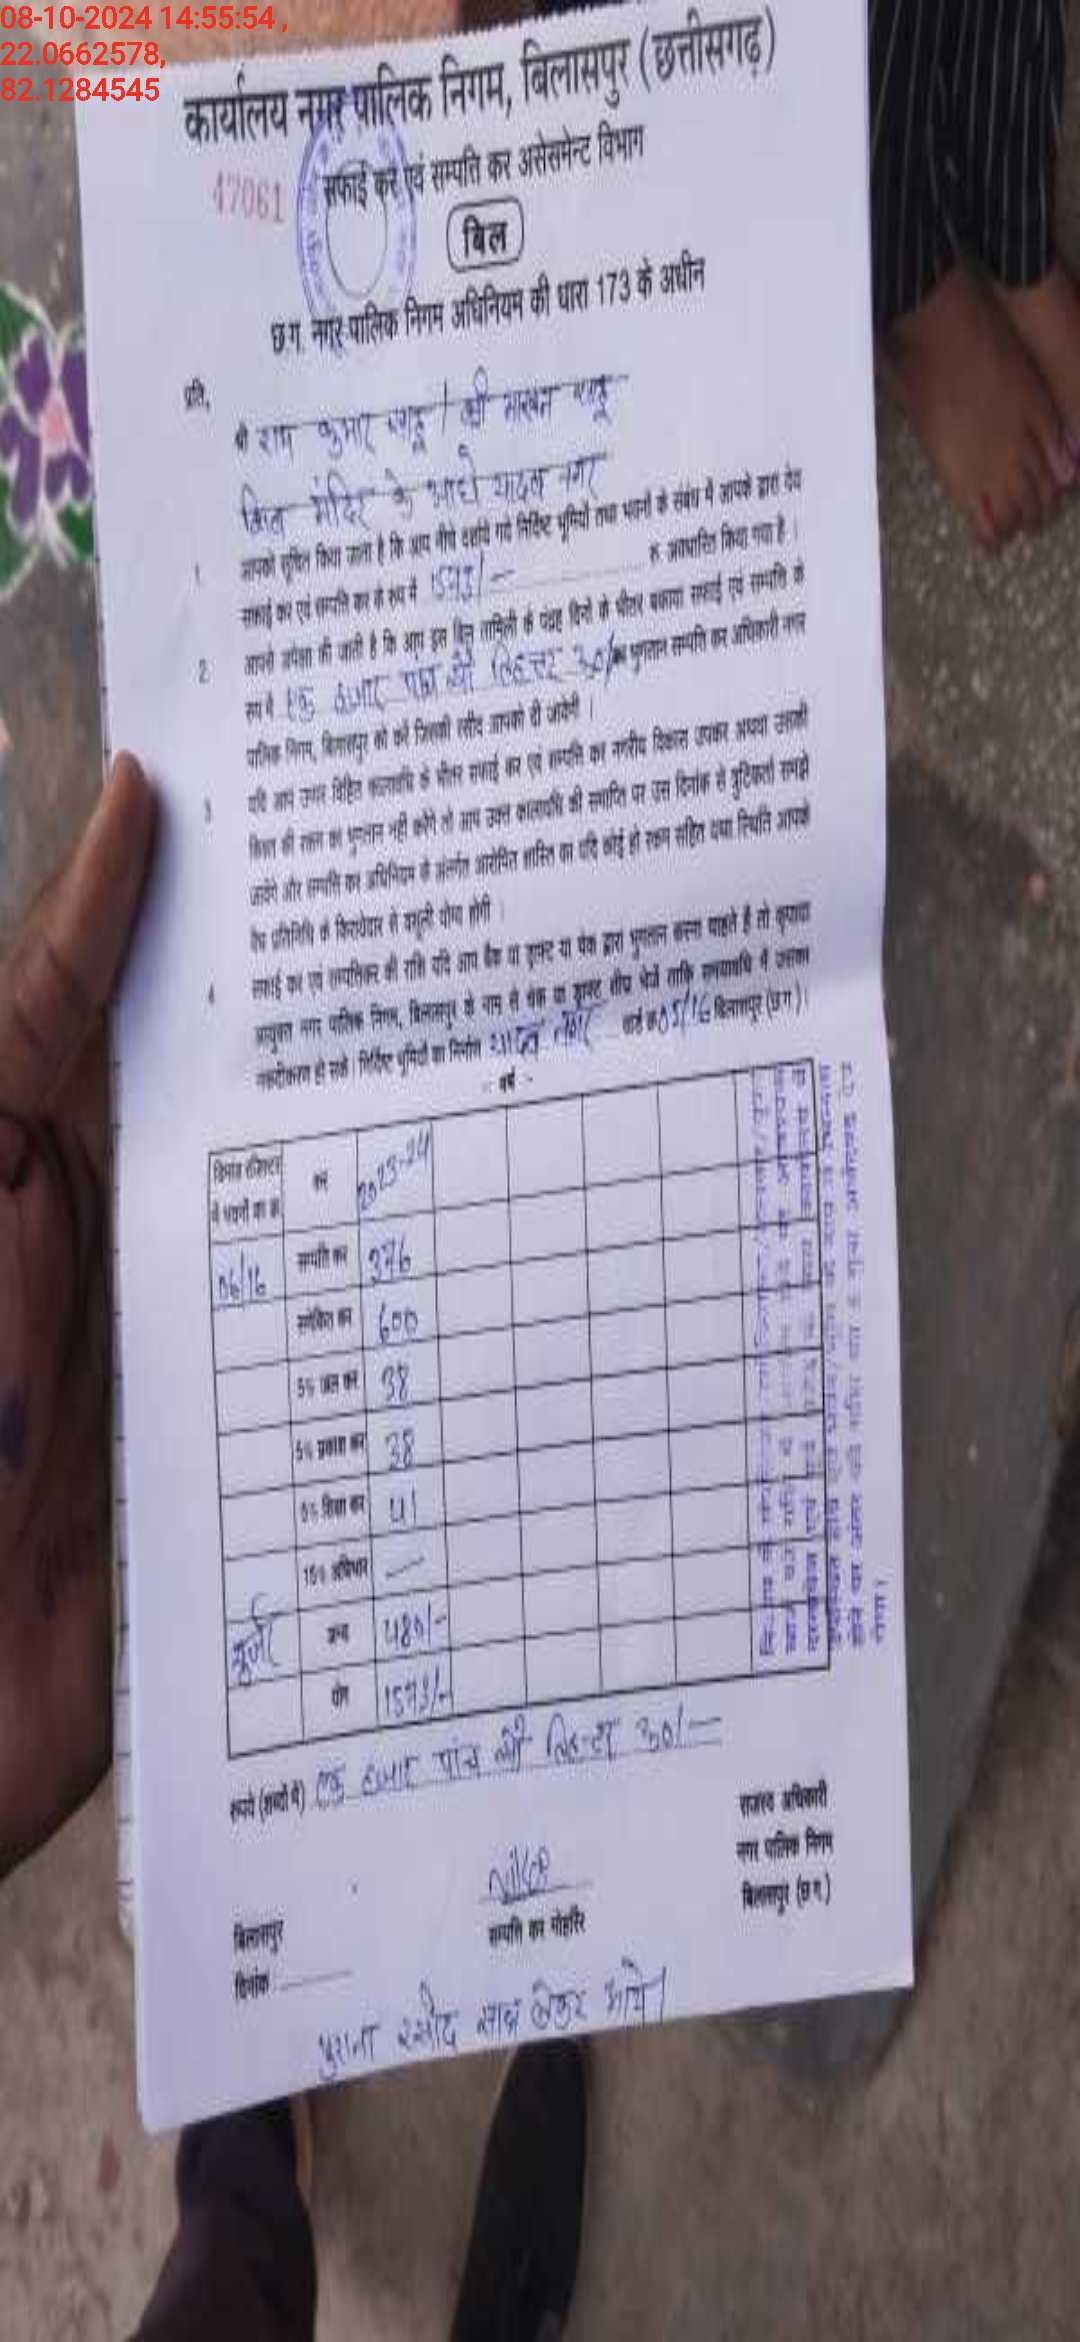 08-10-2024 14:55:54 ,
22.0662578,
82.1284545
कार्यालय नगर पालिक निगम, बिलासपुर (छत्तीसगढ़)
47061
सफाई कर एवं सम्पति कर असेसमेन्ट विभाग
बिल
छ.ग. नगर पालिक निगम अधिनियम की धारा 173 के अधीन
प्रति,
श्री राम कुमार साहू / श्री माखन साहू
मंदिर के यादव नगर
1. आपको सूचित किया जाता है कि आप नीचे दर्शाये गये निर्दिष्ट भूमियों तथा भवनों के संबंध में आपके द्वारा देय
सफाई कर एवं सम्पत्ति कर के रूप में 1573/- रू. अवधारित किया गया है ।
2. आपसे अपेक्षा की जाती है कि आप इस बिल तामिली के पंद्रह दिनों के भीतर बकाया सफाई एवं सम्पत्ति के
रूप में एक हजार पांच सौ तिहत्तर रू0/- का भुगतान सम्पत्ति कर अधिकारी नगर
पालिक निगम, बिलासपुर को करें जिसकी रसीद आपको दी जावेगी ।
3. यदि आप उपर विहित कालावधि के भीतर सफाई कर एवं सम्पत्ति कर नगरीय विकास उपकर अथवा उसकी
किश्त की रकम का भुगतान नहीं करेंगे तो आप उक्त कालावधि की समाप्ति पर उस दिनांक से त्रुटिकर्ता समझे
जायेंगे और सम्पत्ति कर अधिनियम के अंतर्गत आरोपित शास्ति का यदि कोई हो रकम सहित यथा स्थिति आपके
वैध प्रतिनिधि के किरायेदार से वसूली योग्य होगी ।
4. सफाई कर एवं सम्पत्तिकर की राशि यदि आप बैंक या ड्राफ्ट या चेक द्वारा भुगतान करना चाहते हैं तो कृपया
आयुक्त नगर पालिक निगम, बिलासपुर के नाम से चेक या ड्राफ्ट शीघ्र भेजें ताकि समयावधि में उसका
नकदीकरण हो सके । निर्दिष्ट भूमियों का निर्माण यादव नगर वार्ड क्र. 05/16 बिलासपुर (छ.ग.)।
-: वर्ष :-
डिमांड रजिस्टर में भवनों का क्र. कर 2023-24
06/16 सम्पत्ति कर 376
समेकित कर 600
5% जल कर 38
5% प्रकाश कर 38
5% शिक्षा कर 41
15% अधिभार —
यूजर अन्य 480/-
योग 1573/-
रूपये (शब्दों में) एक हजार पांच सौ तिहत्तर रू0/-
राजस्व अधिकारी
नगर पालिक निगम
बिलासपुर (छ.ग.)
सम्पत्ति कर मोहर्रिर
बिलासपुर
दिनांक
पुराना रसीद साथ लेकर आये।